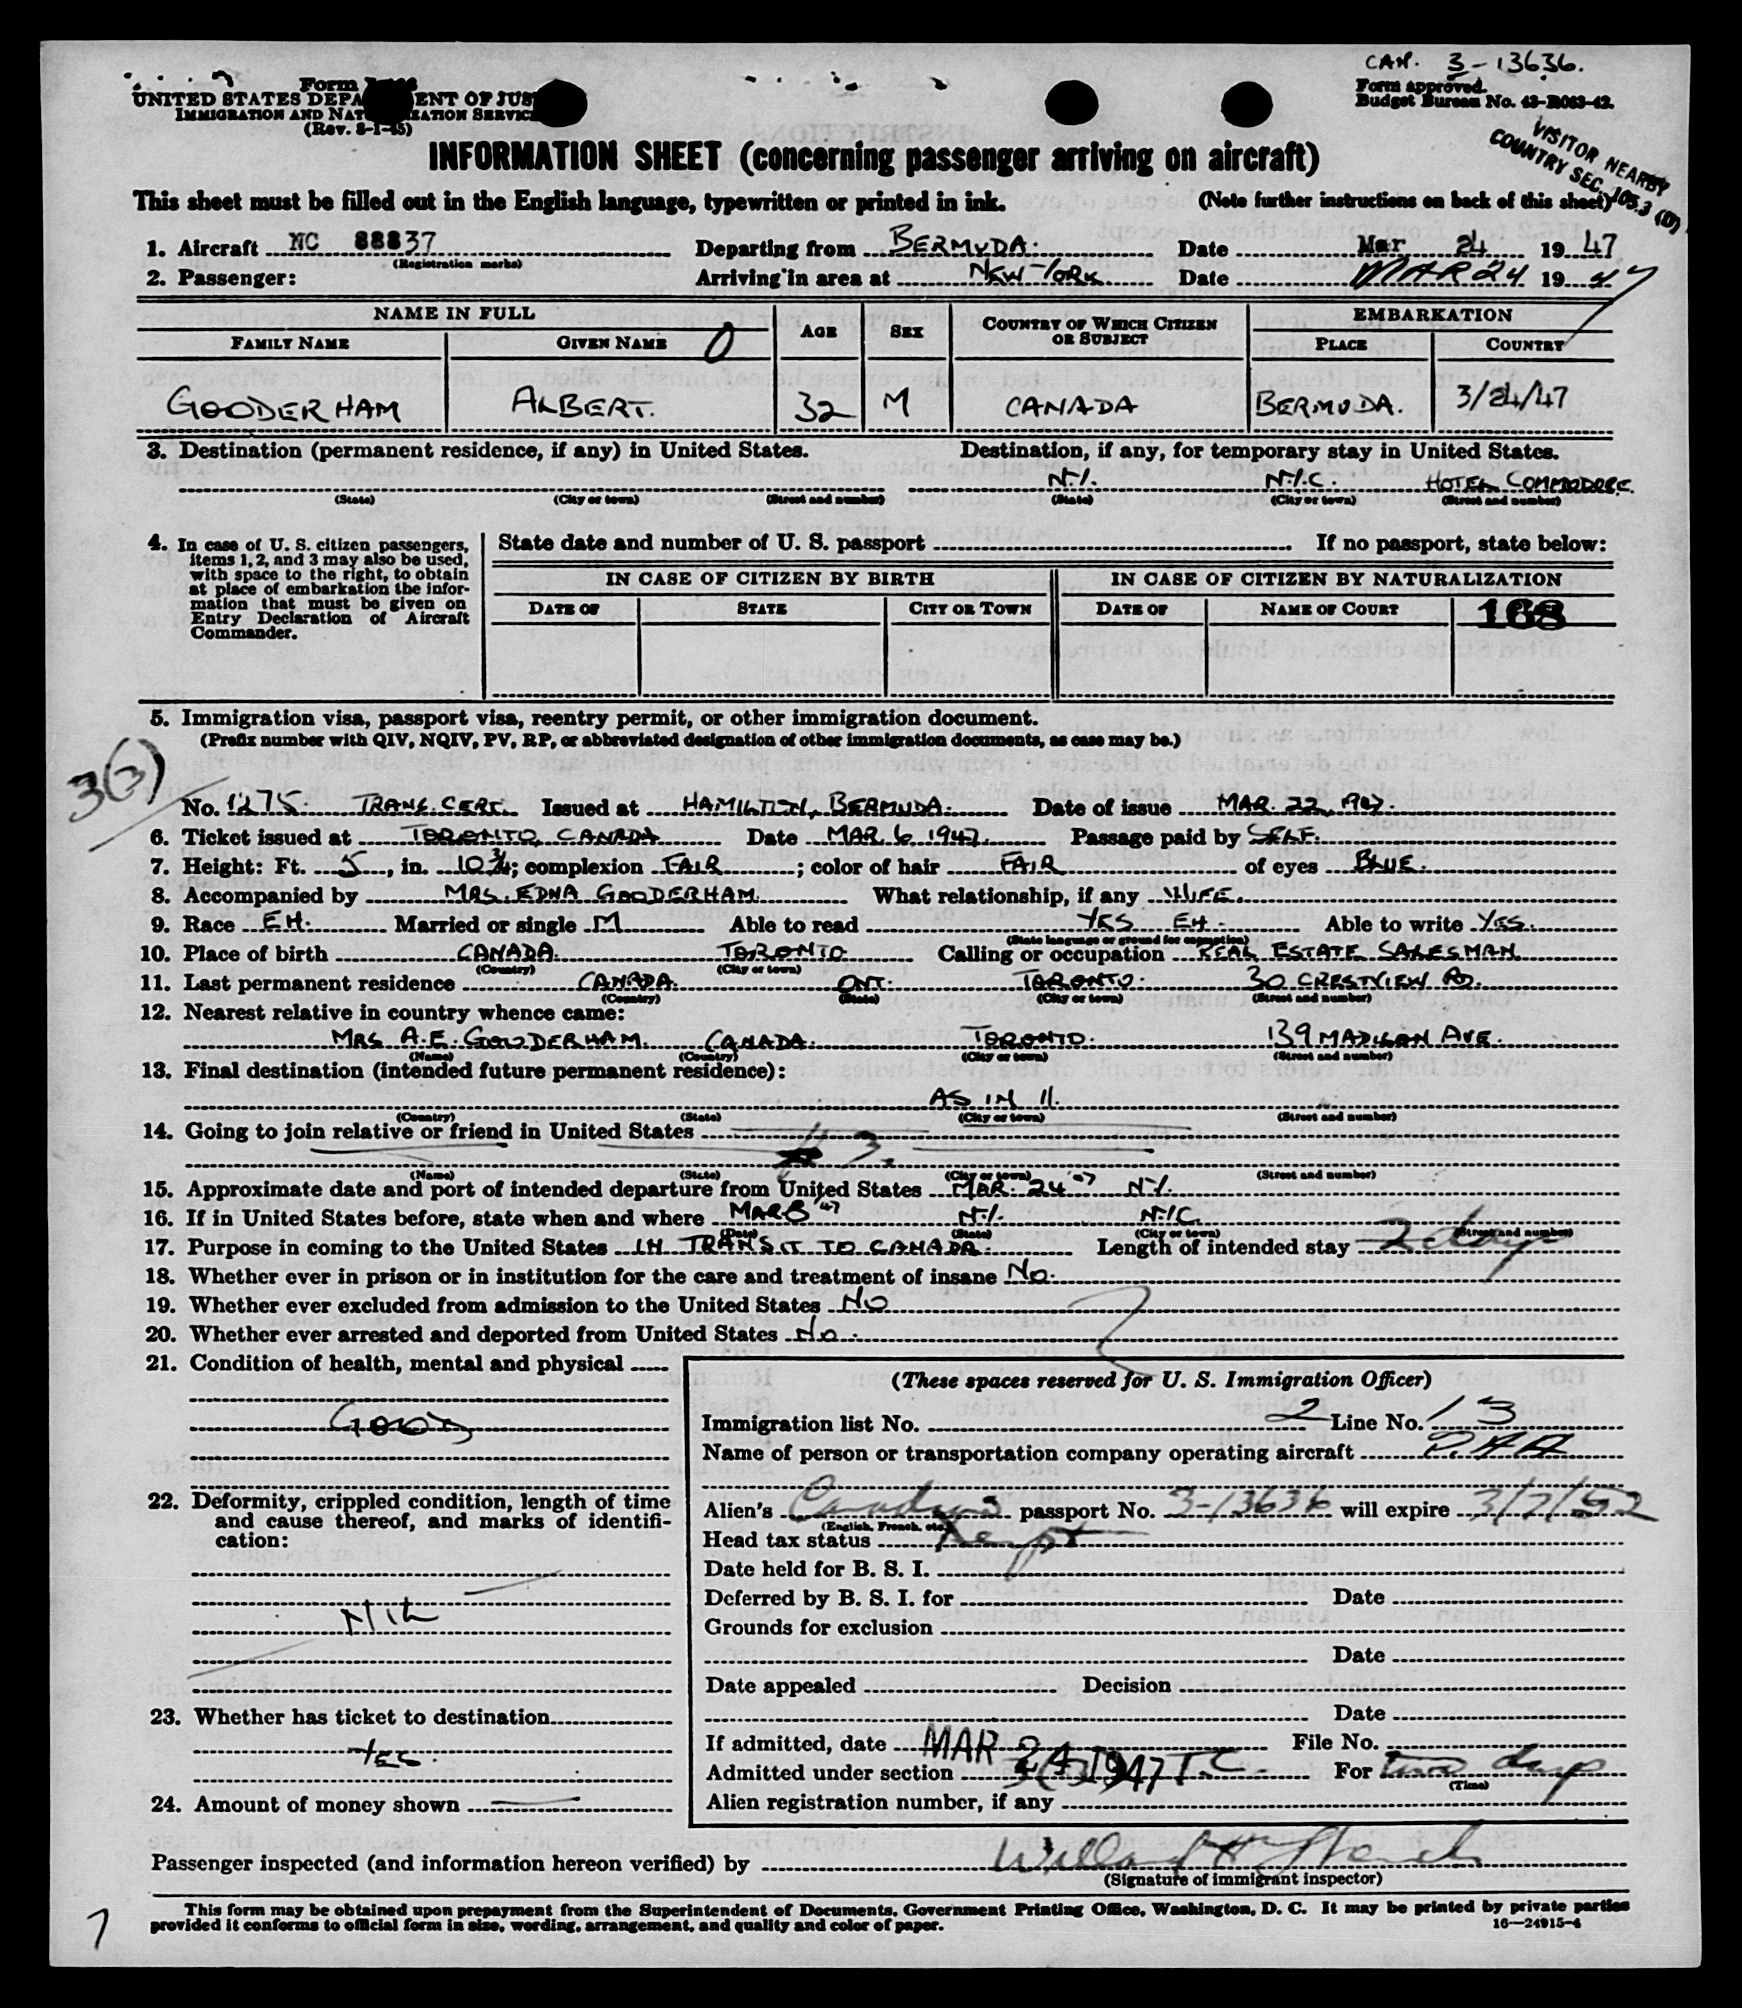 CAN. 3-13636.
Form
UNITED STATES DEPA ENT OF JUS
IMMIGRATION AND NAT IZATION SERVIC
(Rev. 8-1-45)
Form approved.
Budget Bureau No. 43-R063-42.
VISITOR NEARBY
COUNTRY SEC. 105.3 (D)
INFORMATION SHEET (concerning passenger arriving on aircraft)
This sheet must be filled out in the English language, typewritten or printed in ink. (Note further instructions on back of this sheet)
1. Aircraft NC 88837 Departing from BERMUDA. Date Mar 24 19 47
(Registration marks)
2. Passenger: Arriving in area at NEW-YORK Date MAR 24 19 47
NAME IN FULL AGE SEX COUNTRY OF WHICH CITIZEN OR SUBJECT EMBARKATION
FAMILY NAME GIVEN NAME PLACE COUNTRY
GOODERHAM ALBERT. 32 M CANADA BERMUDA. 3/24/47
3. Destination (permanent residence, if any) in United States. Destination, if any, for temporary stay in United States.
N.Y. N.Y.C. HOTEL COMMODORE.
(State) (City or town) (Street and number) (State) (City or town) (Street and number)
4. In case of U. S. citizen passengers, items 1, 2, and 3 may also be used, with space to the right, to obtain at place of embarkation the information that must be given on Entry Declaration of Aircraft Commander.
State date and number of U. S. passport If no passport, state below:
IN CASE OF CITIZEN BY BIRTH IN CASE OF CITIZEN BY NATURALIZATION
DATE OF STATE CITY OR TOWN DATE OF NAME OF COURT 168
5. Immigration visa, passport visa, reentry permit, or other immigration document.
(Prefix number with QIV, NQIV, PV, RP, or abbreviated designation of other immigration documents, as case may be.)
3(3)
No. 1275 TRANS. CERT. Issued at HAMILTON, BERMUDA. Date of issue MAR. 22, 1947.
6. Ticket issued at TORONTO, CANADA Date MAR 6 1947. Passage paid by SELF.
7. Height: Ft. 5, in. 10 3/4; complexion FAIR; color of hair FAIR of eyes BLUE.
8. Accompanied by MRS. EDNA GOODERHAM. What relationship, if any WIFE.
9. Race EH. Married or single M Able to read YES EH. Able to write YES.
(State language or ground for exemption)
10. Place of birth CANADA. TORONTO Calling or occupation REAL ESTATE SALESMAN
(Country) (City or town)
11. Last permanent residence CANADA. ONT. TORONTO. 30 CRESTVIEW RD.
(Country) (State) (City or town) (Street and number)
12. Nearest relative in country whence came:
MRS A.E. GOODERHAM. CANADA. TORONTO. 139 MADISON AVE.
(Name) (Country) (City or town) (Street and number)
13. Final destination (intended future permanent residence):
AS IN 11.
(Country) (State) (City or town) (Street and number)
14. Going to join relative or friend in United States
# 3.
(Name) (State) (City or town) (Street and number)
15. Approximate date and port of intended departure from United States MAR. 24 '47 N.Y.
16. If in United States before, state when and where MAR 8 '47 N.Y. N.Y.C.
(Date) (State) (City or town) (Street and number)
17. Purpose in coming to the United States IN TRANSIT TO CANADA. Length of intended stay 2 days
18. Whether ever in prison or in institution for the care and treatment of insane NO.
19. Whether ever excluded from admission to the United States NO
20. Whether ever arrested and deported from United States NO.
21. Condition of health, mental and physical
GOOD
22. Deformity, crippled condition, length of time and cause thereof, and marks of identification:
NIL
23. Whether has ticket to destination
YES.
24. Amount of money shown
(These spaces reserved for U. S. Immigration Officer)
Immigration list No. 2 Line No. 13
Name of person or transportation company operating aircraft P.A.A.
Alien's Canadian passport No. 3-13636 will expire 3/7/52
(English, French, etc.)
Head tax status
Date held for B. S. I.
Deferred by B. S. I. for Date
Grounds for exclusion
Date
Date appealed Decision
Date
If admitted, date MAR 24 1947 File No.
Admitted under section 3(3) T.C. For two days
(Time)
Alien registration number, if any
Passenger inspected (and information hereon verified) by
(Signature of immigrant inspector)
This form may be obtained upon prepayment from the Superintendent of Documents, Government Printing Office, Washington, D. C. It may be printed by private parties
provided it conforms to official form in size, wording, arrangement, and quality and color of paper. 16—24915-4